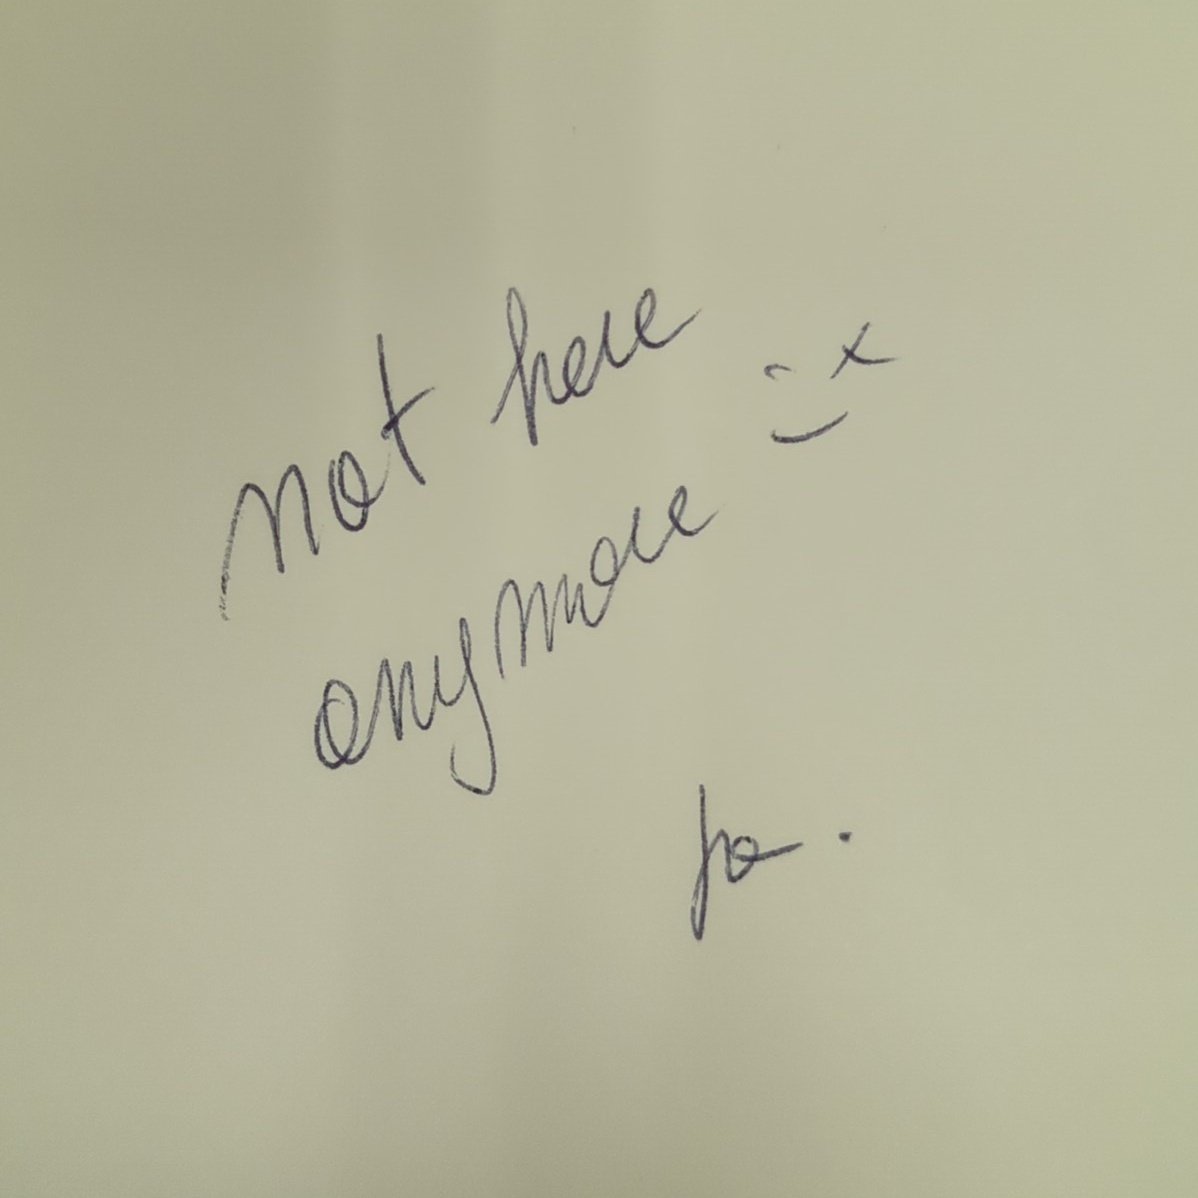 not here
anymore
Jo.